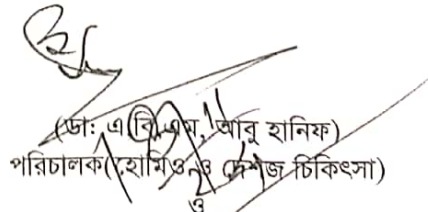 (ডা: এ,বি,এম, আবু হানিফ)
পরিচালক(হোমিও ও দেশজ চিকিৎসা)